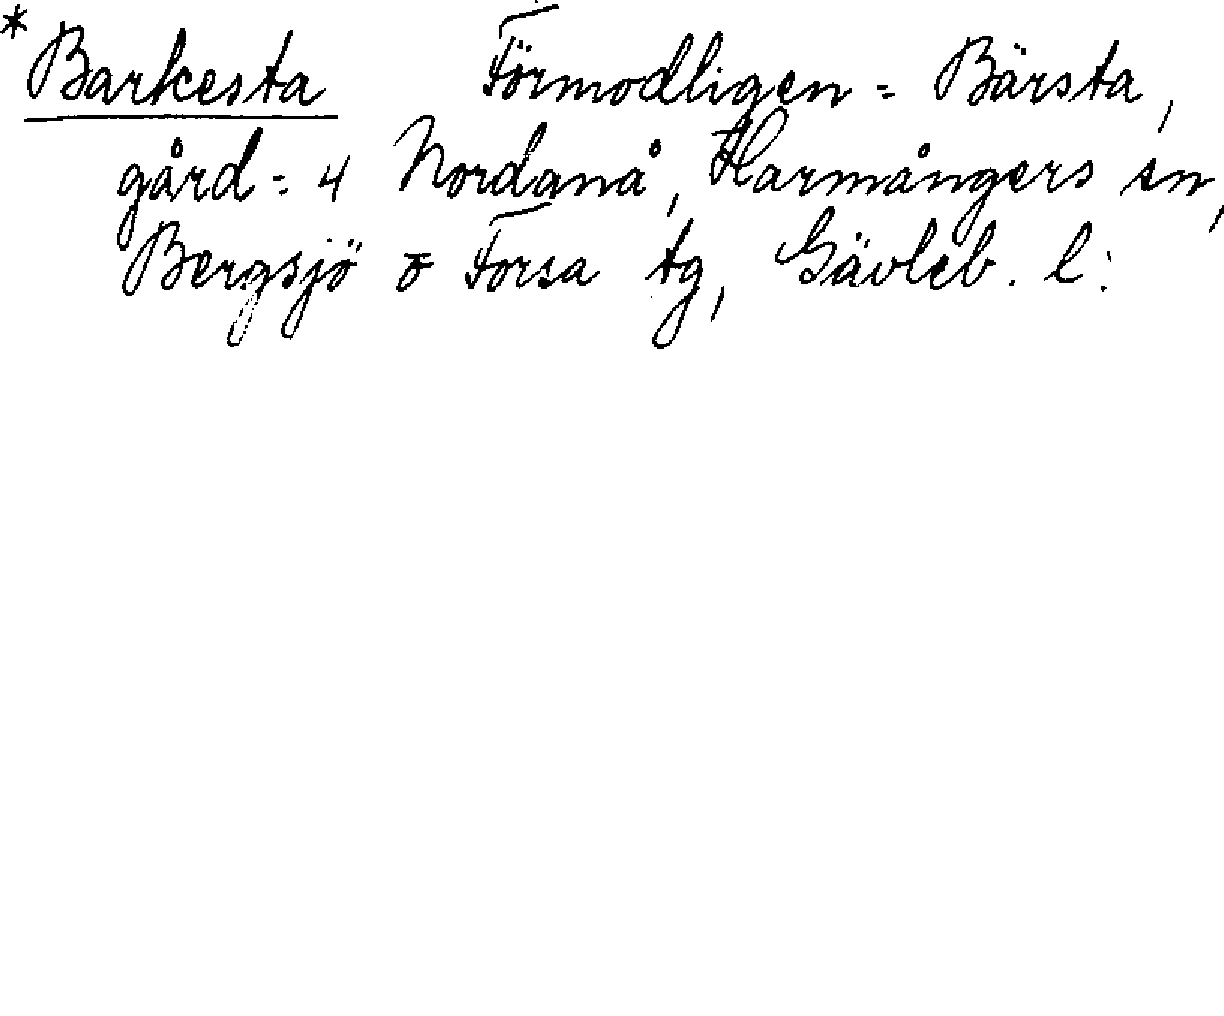 * Barkesta Förmodligen = Bärsta,
gård = 4 Nordanå, Harmångers sn,
Bergsjö o Forsa tg, Gävleb. l: